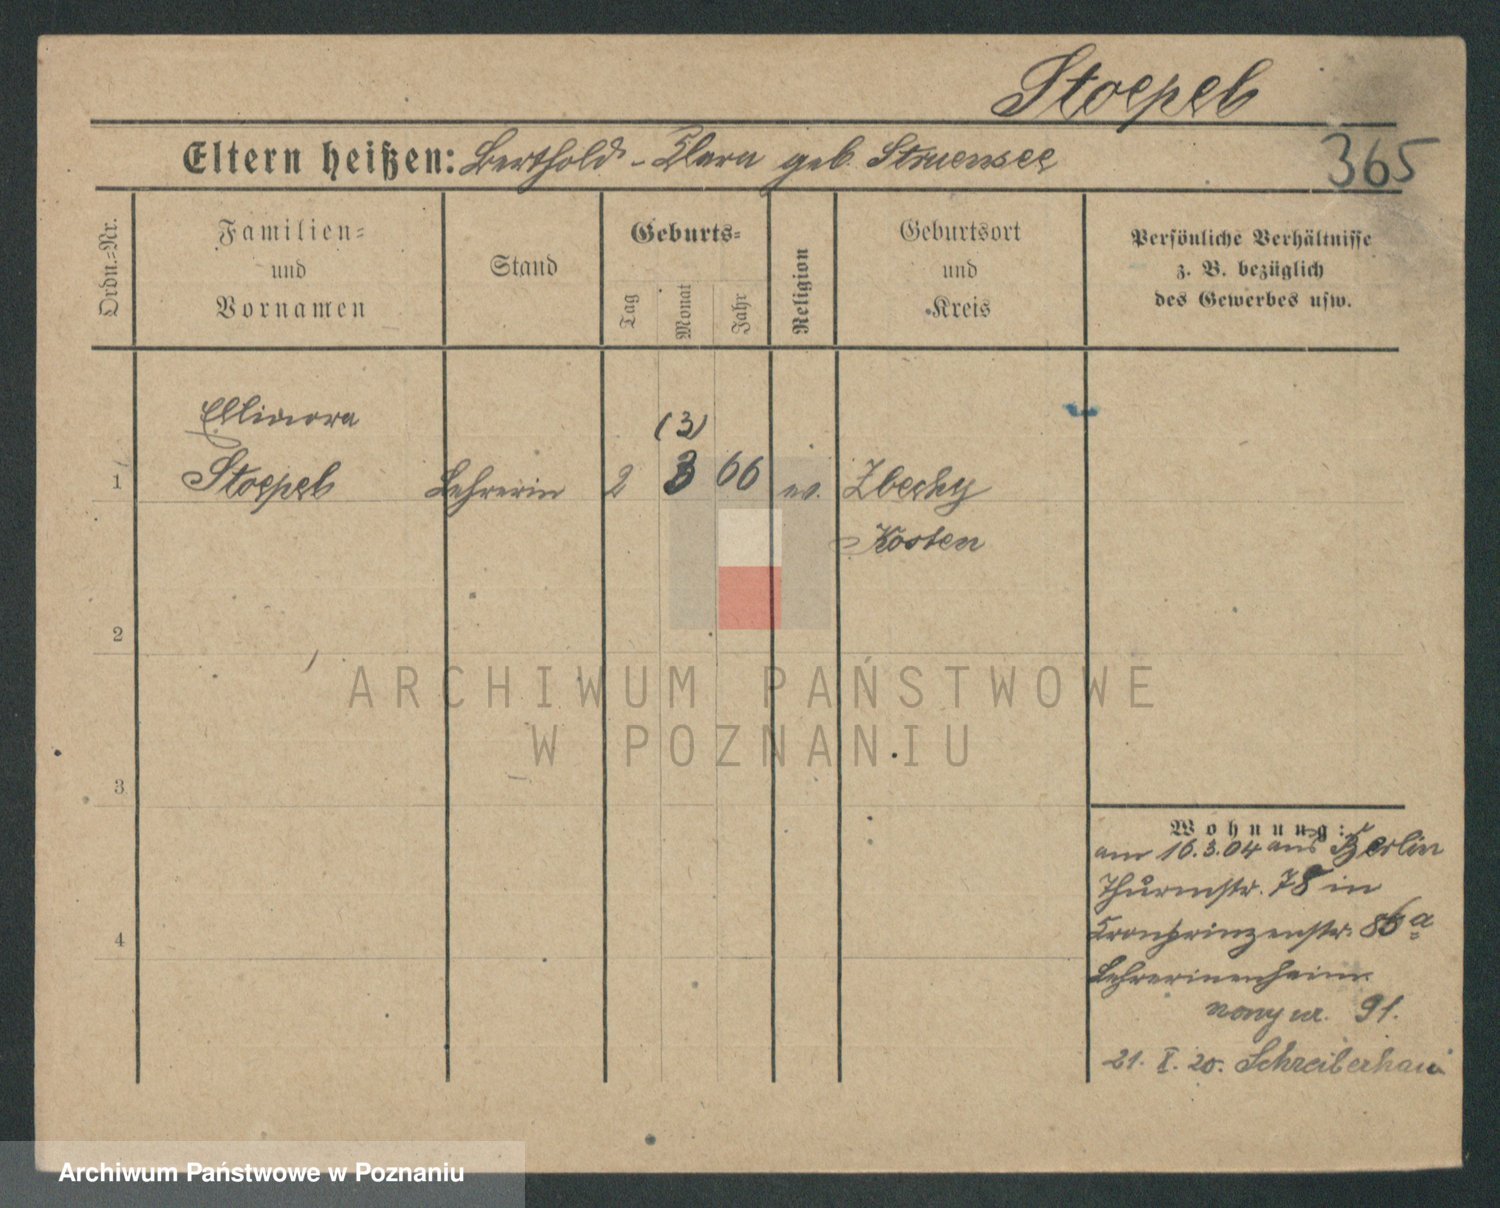 Stoepel
Eltern heißen: Berthold - Clara geb. Struensee
365
Ordn.=Nr.
Familien=
und
Vornamen
Stand
Geburts=
Tag
Monat
Jahr
Religion
Geburtsort
und
Kreis
Persönliche Verhältnisse
z. B. bezüglich
des Gewerbes usw.
Ellinora
(3)
1 Stoepel Lehrerin 2 3 66 ev. Zbechy
Kosten
2
3
4
ARCHIWUM PAŃSTWOWE
W POZNANIU
Wohnung:
am 16.3.04 aus Berlin
Thurmstr. 78 in
Kronprinzenstr. 86a
Lehrerinenheim
91.
21. X. 20. Schreiberhau
Archiwum Państwowe w Poznaniu